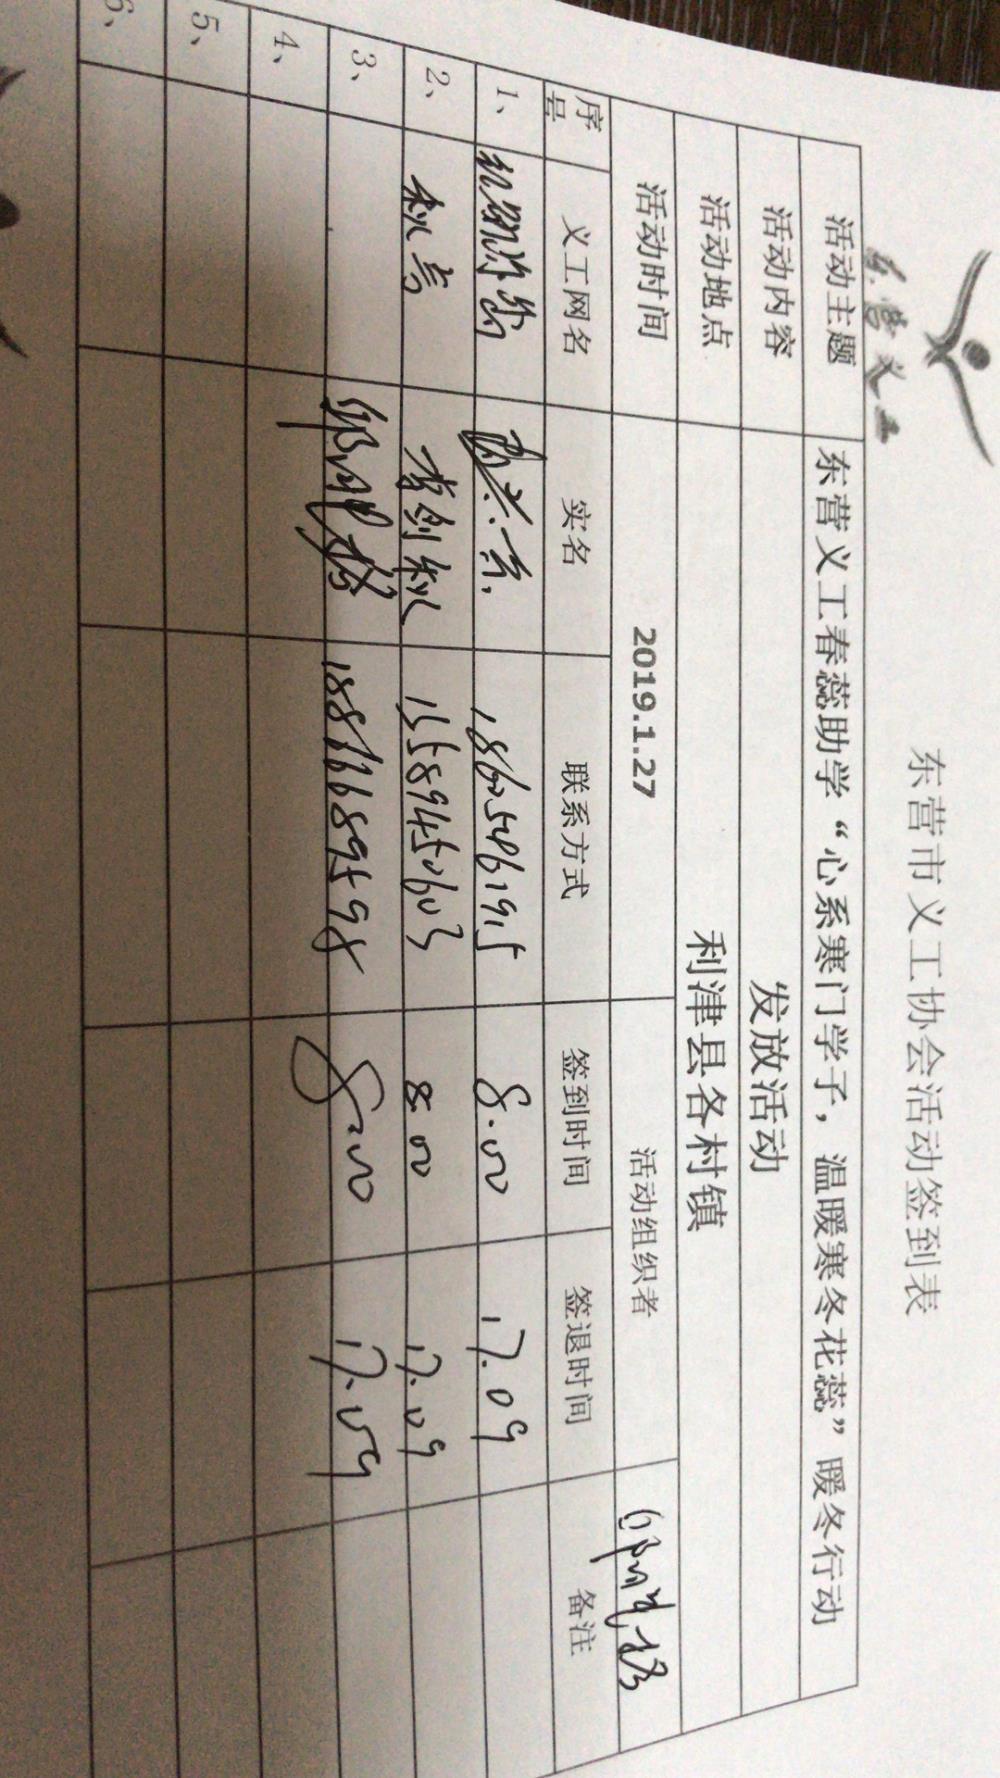 东营义工
东营市义工协会活动签到表
活动主题 东营义工春蕊助学“心系寒门学子，温暖寒冬花蕊”暖冬行动
活动内容 发放活动
活动地点 利津县各村镇
活动时间 2019.1.27 活动组织者
序号 义工网名 实名 联系方式 签到时间 签退时间 备注
1、 18605461915 8.00 17.09
2、 秋言 15589450603 8.00 17.09
3、 18866689598 8:00 17.09
4、
5、
6、